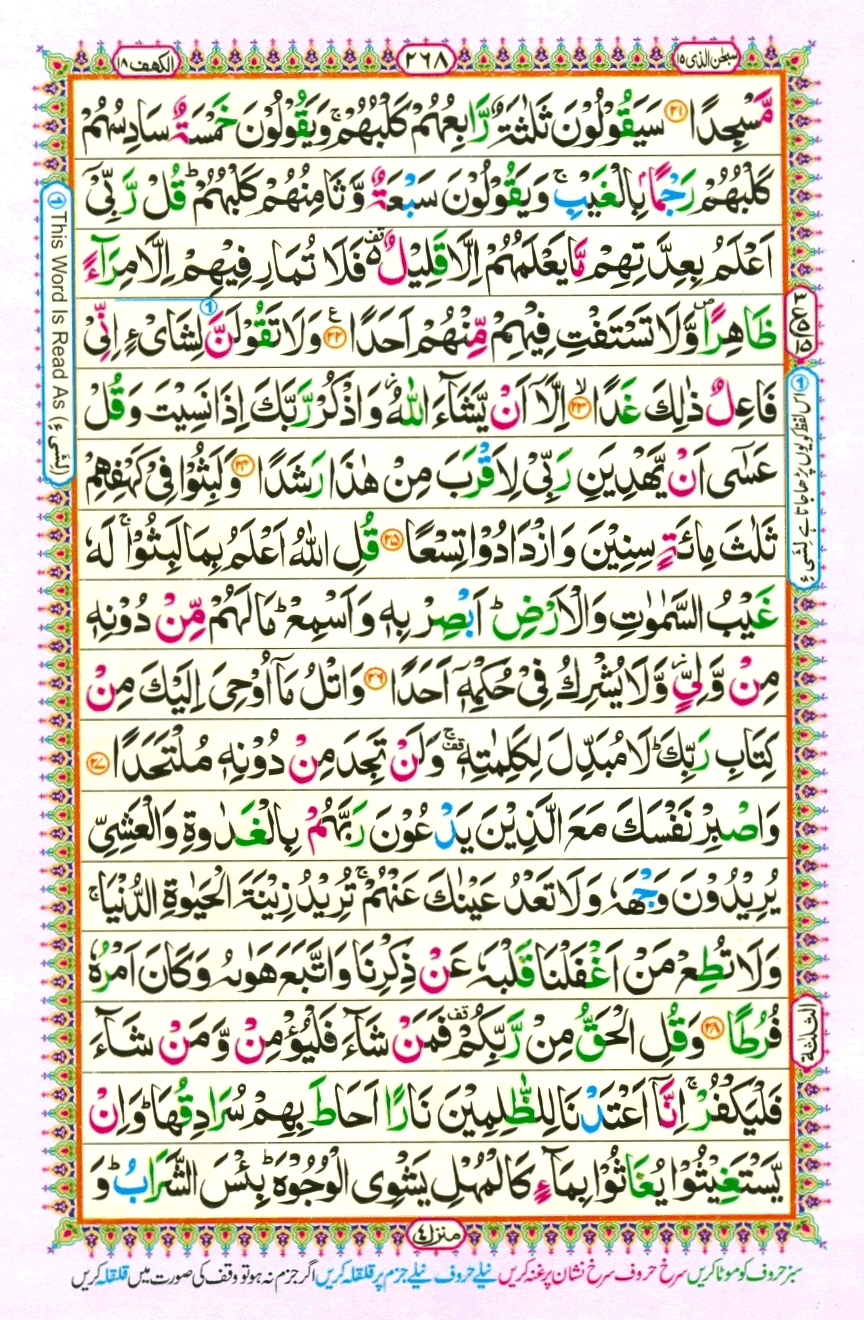 سبحٰن الذی ۱۵
۲۶۸
الکھف ۱۸
مَّسۡجِدًا ﴿۲۱﴾ سَيَقُوۡلُوۡنَ ثَلٰثَةٌ رَّابِعُهُمۡ كَلۡبُهُمۡ‌ۚ وَيَقُوۡلُوۡنَ خَمۡسَةٌ سَادِسُهُمۡ
كَلۡبُهُمۡ رَجۡمًۢا بِالۡغَيۡبِ‌ۚ وَيَقُوۡلُوۡنَ سَبۡعَةٌ وَّثَامِنُهُمۡ كَلۡبُهُمۡ‌ؕ قُلْ رَّبِّىۡۤ
اَعۡلَمُ بِعِدَّتِهِمۡ مَّا يَعۡلَمُهُمۡ اِلَّا قَلِيۡلٌ فَلَا تُمَارِ فِيۡهِمۡ اِلَّا مِرَآءً
ظَاهِرًا وَّلَا تَسۡتَفۡتِ فِيۡهِمۡ مِّنۡهُمۡ اَحَدًا ﴿۲۲﴾ وَلَا تَقُوۡلَنَّ لِشَاىۡءٍ اِنِّىۡ
فَاعِلٌ ذٰلِكَ غَدًا ۙ‏﴿۲۳﴾ اِلَّاۤ اَنۡ يَّشَآءَ اللّٰهُ‌ وَاذۡكُرْ رَّبَّكَ اِذَا نَسِيۡتَ وَقُلۡ
عَسٰٓى اَنۡ يَّهۡدِيَنِ رَبِّىۡ لِاَقۡرَبَ مِنۡ هٰذَا رَشَدًا ﴿۲۴﴾ وَلَبِثُوۡا فِىۡ كَهۡفِهِمۡ
ثَلٰثَ مِائَةٍ سِنِيۡنَ وَازۡدَادُوۡا تِسۡعًا ﴿۲۵﴾ قُلِ اللّٰهُ اَعۡلَمُ بِمَا لَبِثُوۡا‌ ۚ لَهٗ
غَيۡبُ السَّمٰوٰتِ وَالۡاَرۡضِ‌ؕ اَبۡصِرۡ بِهٖ وَاَسۡمِعۡ‌ؕ مَا لَهُمۡ مِّنۡ دُوۡنِهٖ
مِنۡ وَّلِىٍّ وَّلَا يُشۡرِكُ فِىۡ حُكۡمِهٖۤ اَحَدًا ﴿۲۶﴾ وَاتۡلُ مَاۤ اُوۡحِىَ اِلَيۡكَ مِنۡ
كِتَابِ رَبِّكَ‌ؕ لَا مُبَدِّلَ لِكَلِمٰتِهٖ‌ۚ وَلَنۡ تَجِدَ مِنۡ دُوۡنِهٖ مُلۡتَحَدًا ﴿۲۷﴾
وَاصۡبِرۡ نَفۡسَكَ مَعَ الَّذِيۡنَ يَدۡعُوۡنَ رَبَّهُمۡ بِالۡغَدٰوةِ وَالۡعَشِىِّ
يُرِيۡدُوۡنَ وَجۡهَهٗ‌ وَلَا تَعۡدُ عَيۡنٰكَ عَنۡهُمۡ‌ۚ تُرِيۡدُ زِيۡنَةَ الۡحَيٰوةِ الدُّنۡيَا‌ ۚ
وَلَا تُطِعۡ مَنۡ اَغۡفَلۡنَا قَلۡبَهٗ عَنۡ ذِكۡرِنَا وَاتَّبَعَ هَوٰٮهُ وَكَانَ اَمۡرُهٗ
فُرُطًا ﴿۲۸﴾ وَقُلِ الۡحَـقُّ مِنۡ رَّبِّكُمۡ‌ فَمَنۡ شَآءَ فَلۡيُؤۡمِنۡ وَّمَنۡ شَآءَ
فَلۡيَكۡفُرۡ‌ ۚ اِنَّاۤ اَعۡتَدۡنَا لِلظّٰلِمِيۡنَ نَارًا اَحَاطَ بِهِمۡ سُرَادِقُهَا‌ ؕ وَاِنۡ
يَّسۡتَغِيۡثُوۡا يُغَاثُوۡا بِمَآءٍ كَالۡمُهۡلِ يَشۡوِى الۡوُجُوۡهَ‌ؕ بِئۡسَ الشَّرَابُ ؕ وَ
① This Word Is Read As (لِشَىۡءٍ)
① اس لفظ کو یوں پڑھا جاتا ہے لِشَیۡءٍ
الثلثة
منزل ۴
سبز حروف کو موٹا کریں سرخ حروف سرخ نشان پر غنہ کریں نیلے حروف نیلے جزم پر قلقلہ کریں اگر جزم نہ ہو تو وقف کی صورت میں قلقلہ کریں